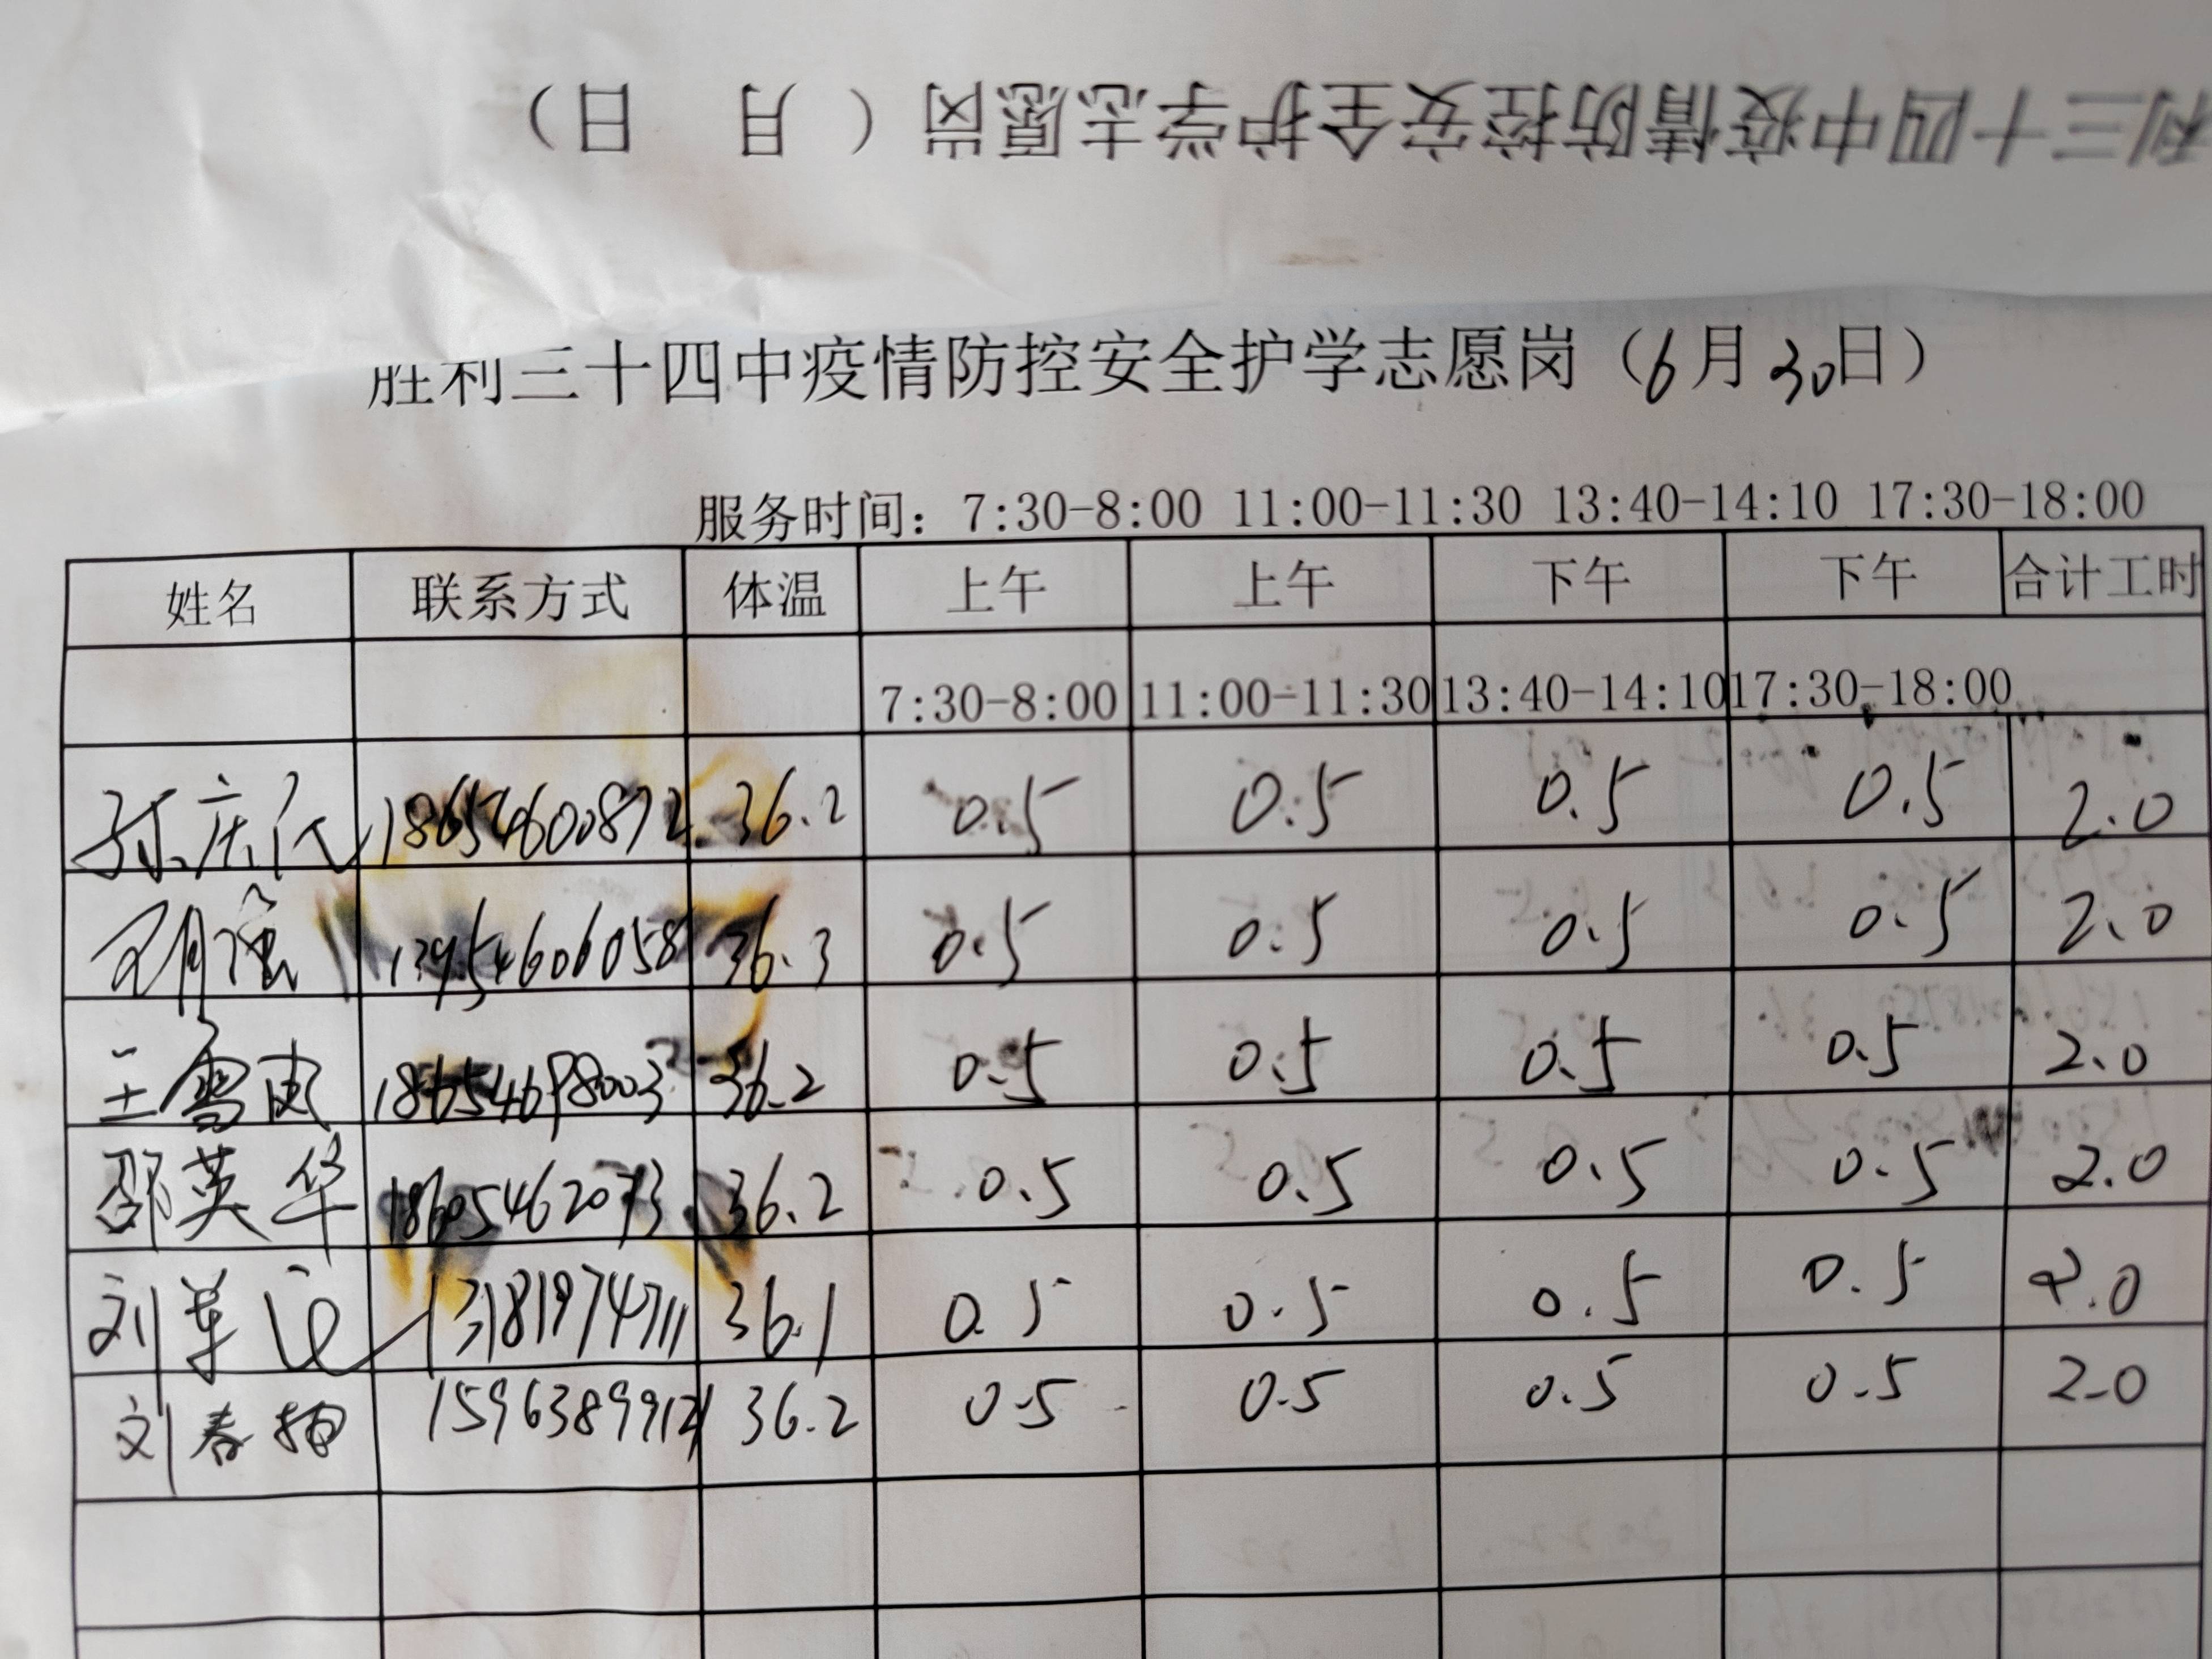 利三十四中疫情防控安全护学志愿岗（ 月 日）
胜利三十四中疫情防控安全护学志愿岗（6月30日）
服务时间：7:30-8:00 11:00-11:30 13:40-14:10 17:30-18:00
姓名 联系方式 体温 上午 上午 下午 下午 合计工时
7:30-8:00 11:00-11:30 13:40-14:10 17:30-18:00
18654600872 36.2 0.5 0.5 0.5 0.5 2.0
13954606058 36.3 0.5 0.5 0.5 0.5 2.0
18654698003 36.2 0.5 0.5 0.5 0.5 2.0
邵英华 18605462073 36.2 0.5 0.5 0.5 0.5 2.0
刘 13181974711 36.1 0.5 0.5 0.5 0.5 2.0
刘春 15963899121 36.2 0.5 0.5 0.5 0.5 2.0